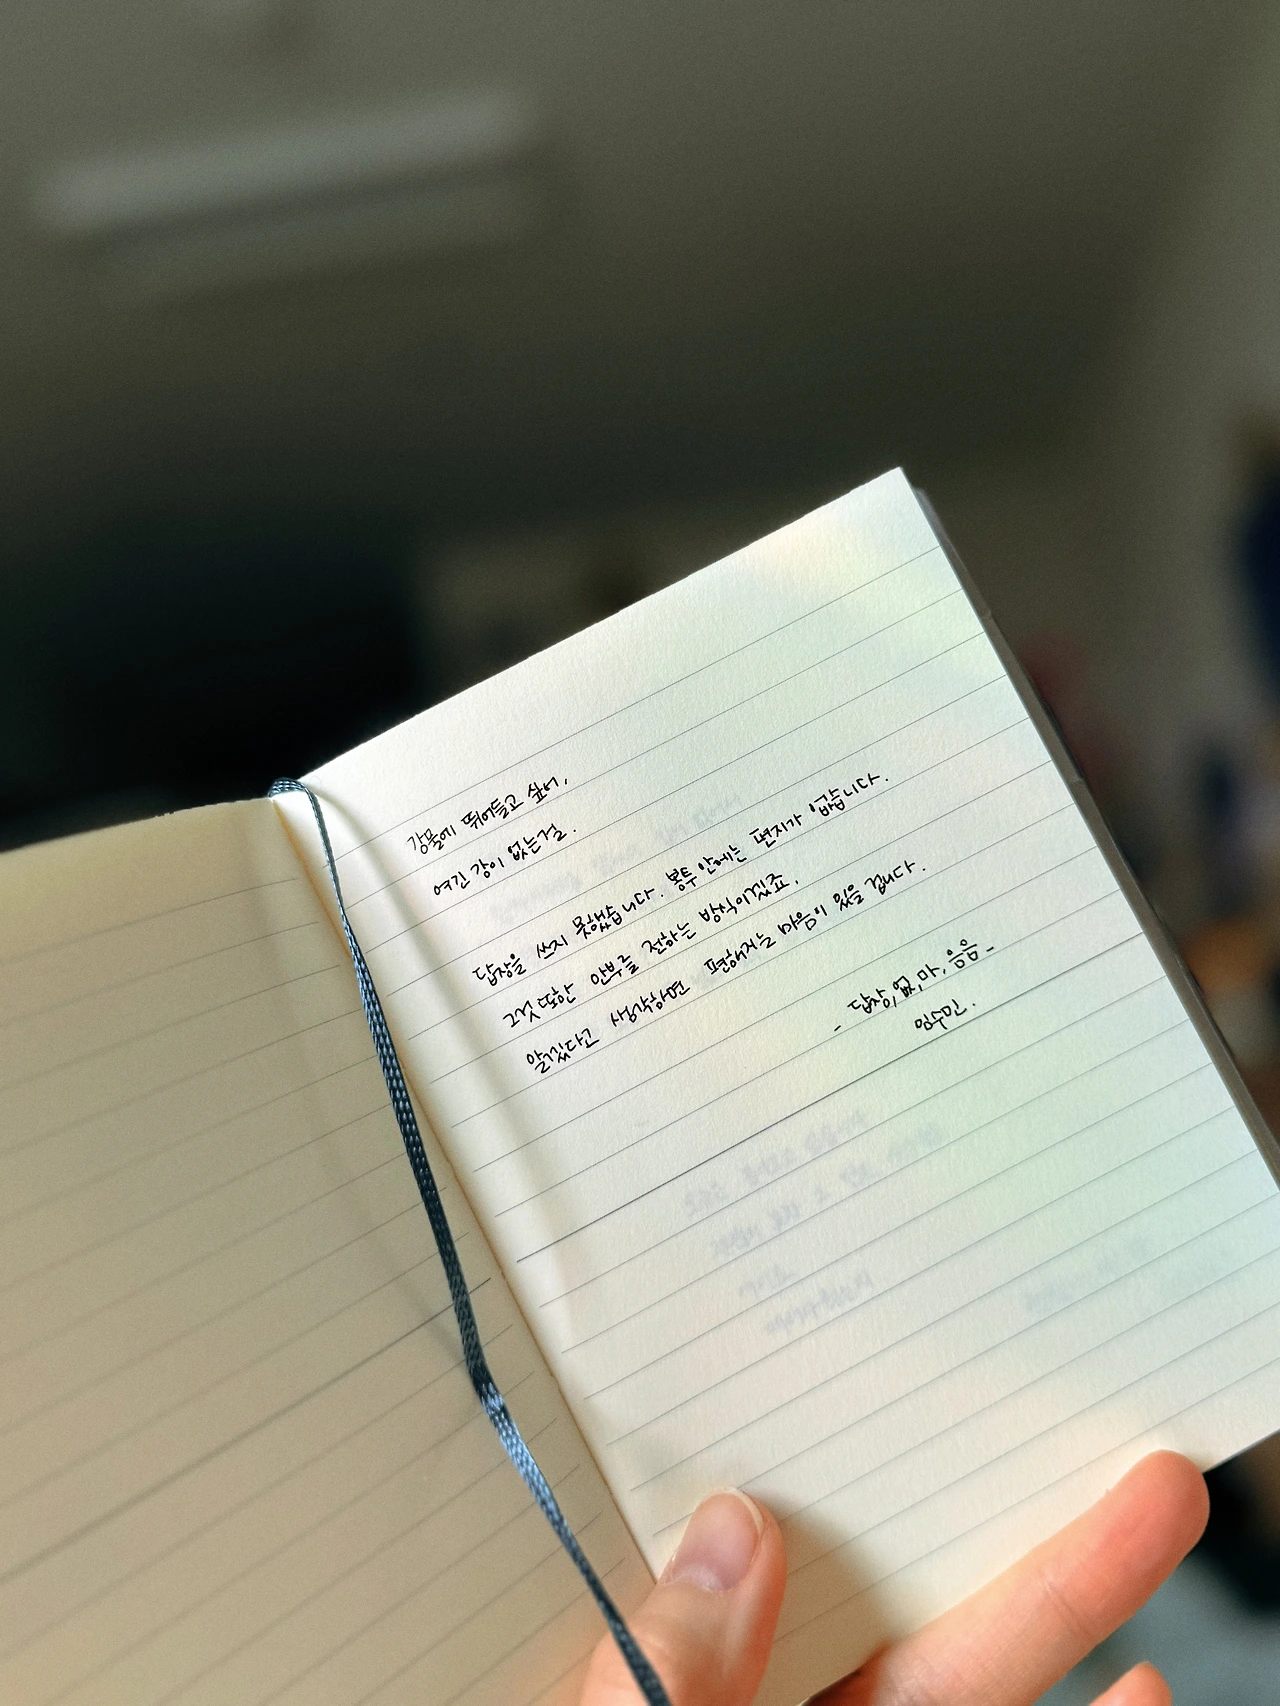 강물에 뛰어들고 싶어,
여긴 강이 없는걸.
답장을 쓰지 못했습니다. 봉투 안에는 편지가 없습니다.
그것 또한 안부를 전하는 방식이겠죠.
알겠다고 생각하면 편해지는 마음이 있을 겁니다.
- 답장, 없, 마, 음음 -
임수민.